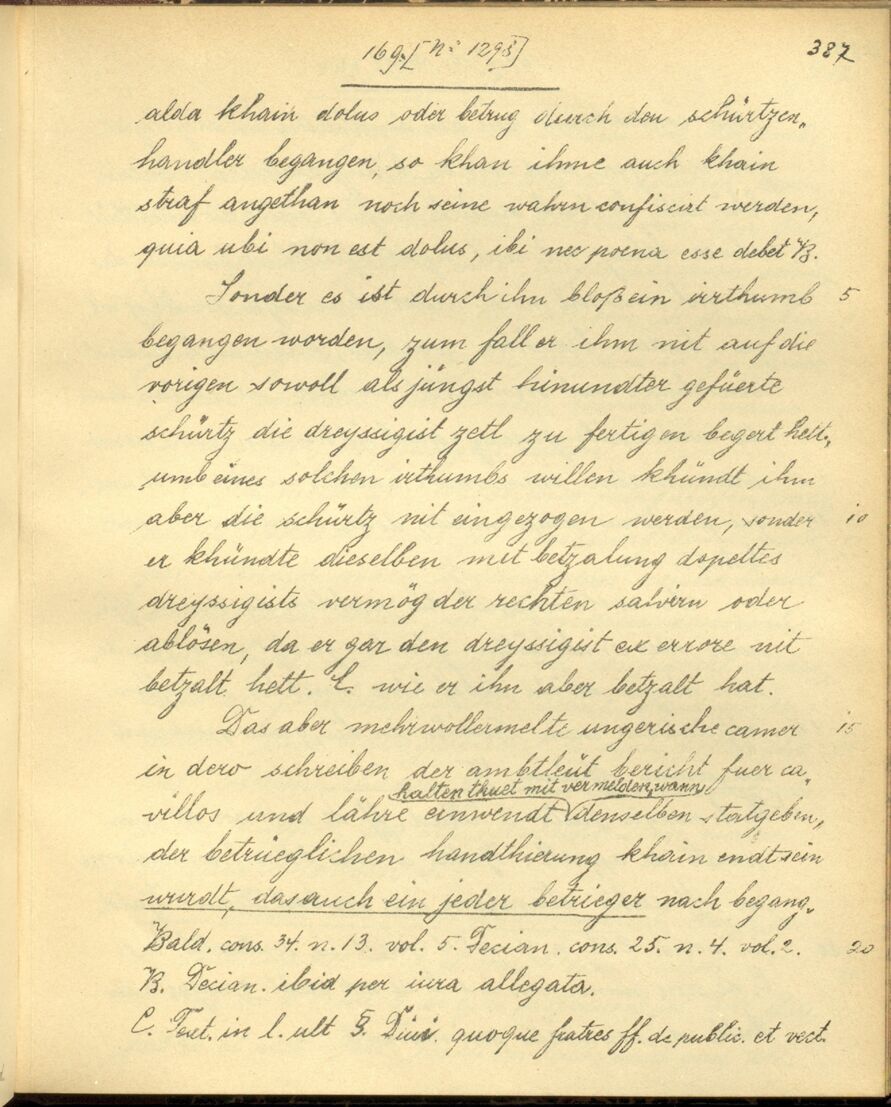 169.[Nº 1298] 387
alda khain dolus oder betrug durch den schürtzen„
handler begangen, so khan ihme auch khain
straf angethan noch seine wahrn confisciert werden,
quia ubi non est dolus, ibi nec poena esse debet B.
Sonder es ist durch ihn bloß ein irrthumb 5
begangen worden, zum fall er ihm nit auf die
vorigen sowoll als jüngst hinundter gefüerte
schürtz die dreyssigist zetl zu fertigen begert hett,
umb eines solchen irthumbs willen khündt ihm
aber die schürtz nit eingezogen werden, sonder 10
er khündte dieselben mit betzalung dopeltes
dreyssigists vermög der rechten salvirn oder
ablösen, da er gar den dreyssigist ex errore nit
betzalt hett. C. wie er ihn aber betzalt hat.
Das aber mehrwollermelte ungerische camer 15
in dero schreiben der ambtleüt bericht fuer ca„
halten thuet mit vermelden, wann
villos und lähre einwendt denselben statgeben,
der betrüeglichen handthierung khain endt sein
wurdt, das auch ein jeder betrieger nach begang„
Bald. cons. 34. n. 13. vol. 5. Decian. cons. 25. n. 4. vol. 2. 20
B. Decian. ibid per iura allegata.
C. Text. in l. ult §. Divi quoque fratres ff. de public. et vect.